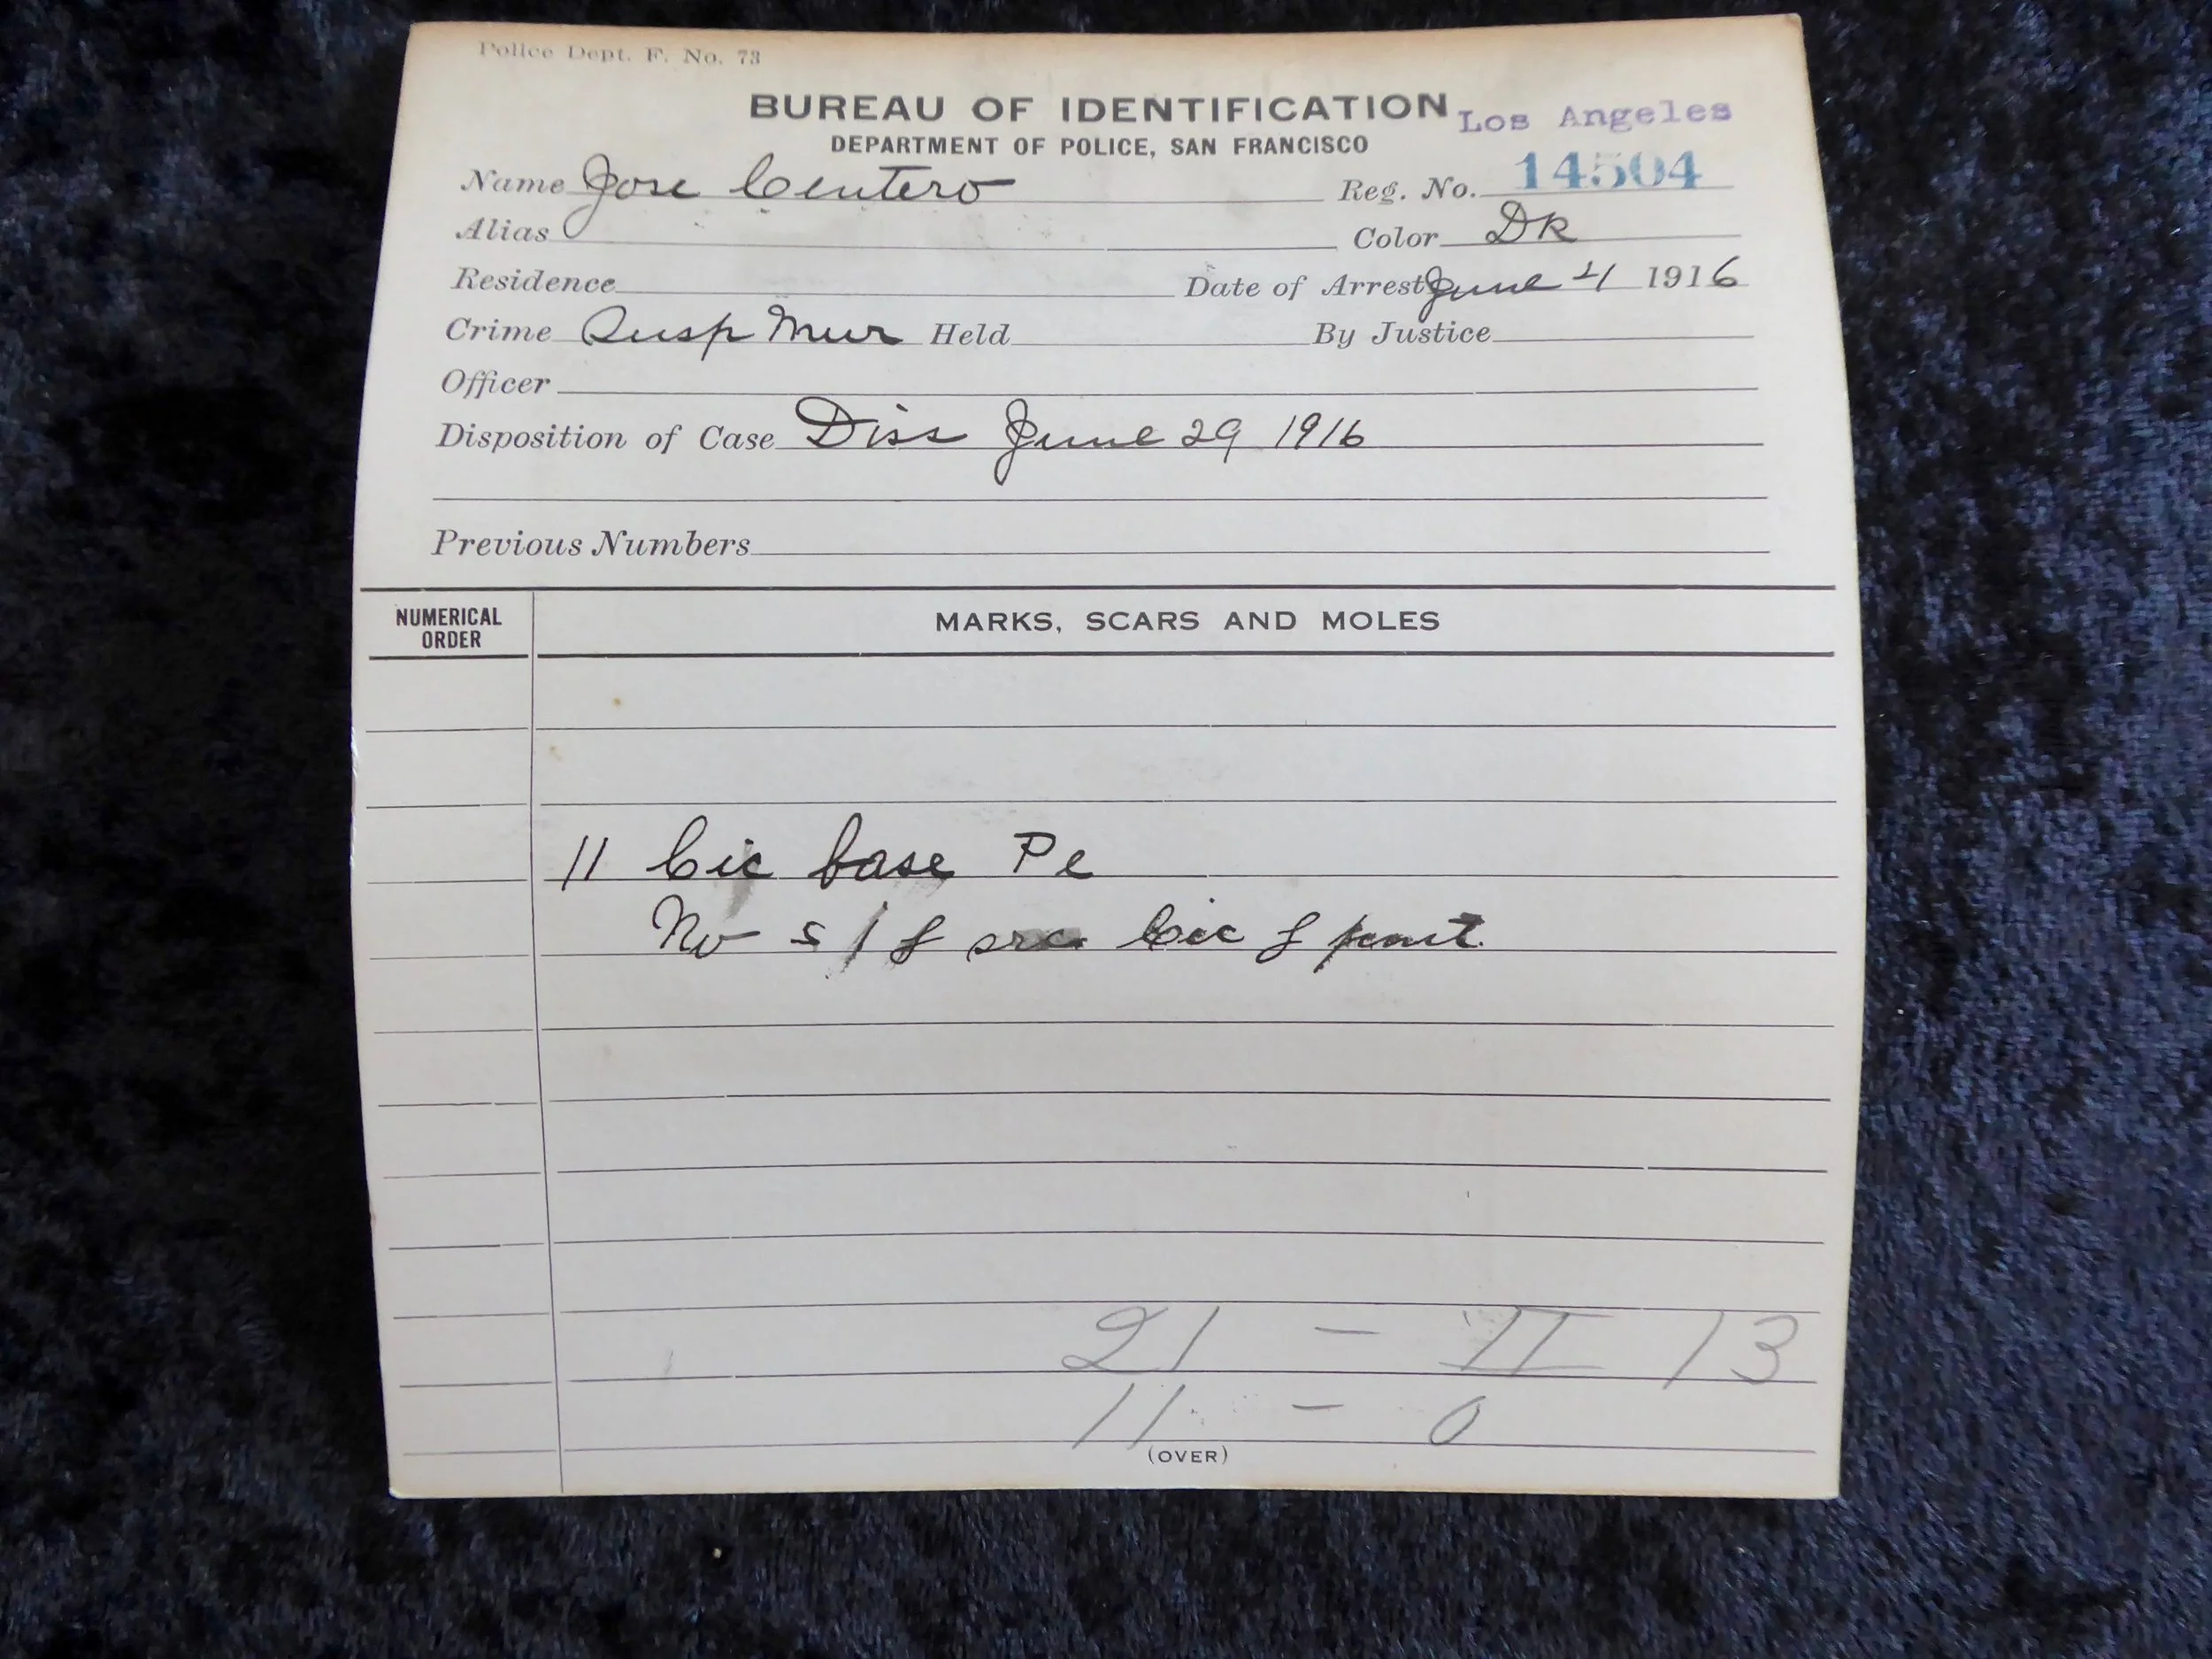 Police Dept. F. No. 73
BUREAU OF IDENTIFICATION Los Angeles
DEPARTMENT OF POLICE, SAN FRANCISCO
Name Jose Centero Reg. No. 14504
Alias Color DK
Residence Date of Arrest June 1916
Crime Susp Mur Held By Justice
Officer
Disposition of Case Diss June 29 1916
Previous Numbers
NUMERICAL ORDER MARKS, SCARS AND MOLES
11 Cic base
No
21 - II 13
11 - 0
(OVER)